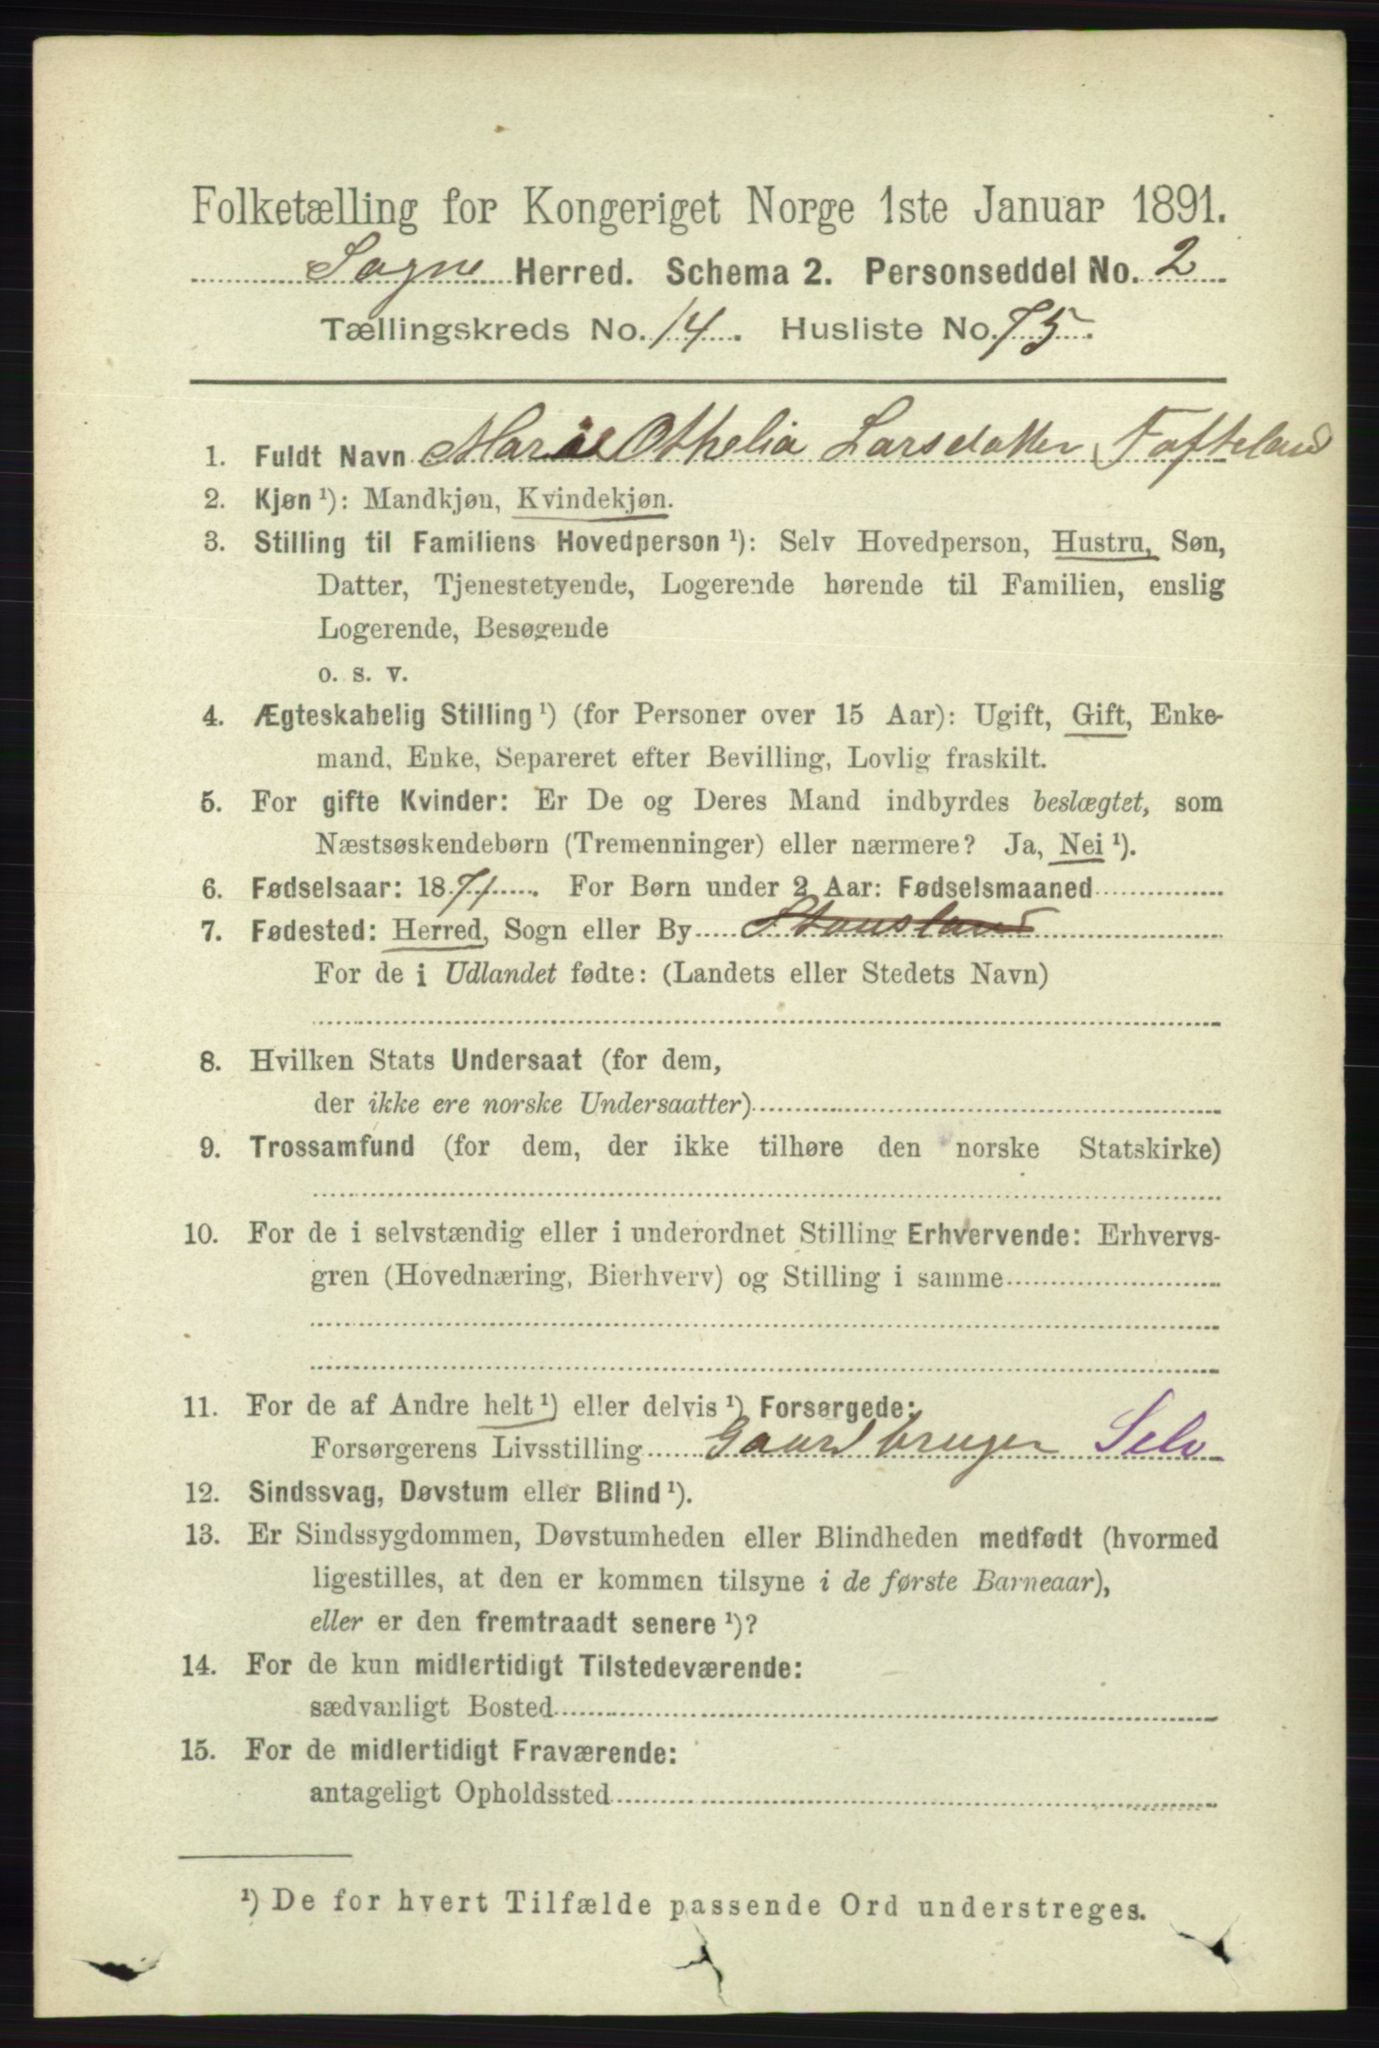 Folketælling for Kongeriget Norge 1ste Januar 1891.
Søgne Herred. Schema 2. Personseddel No. 2
Tællingskreds No. 14. Husliste No. 75.
1. Fuldt Navn Marie Othelia Larsdatter Tofteland
2. Kjøn ¹): Mandkjøn, Kvindekjøn.
3. Stilling til Familiens Hovedperson ¹): Selv Hovedperson, Hustru, Søn,
Datter, Tjenestetyende, Logerende hørende til Familien, enslig
Logerende, Besøgende
o. s. v.
4. Ægteskabelig Stilling ¹) (for Personer over 15 Aar): Ugift, Gift, Enke-
mand, Enke, Separeret efter Bevilling, Lovlig fraskilt.
5. For gifte Kvinder: Er De og Deres Mand indbyrdes beslægtet, som
Næstsøskendebørn (Tremenninger) eller nærmere? Ja, Nei ¹).
6. Fødselsaar: 1871. For Børn under 2 Aar: Fødselsmaaned
7. Fødested: Herred, Sogn eller By Stausland
For de i Udlandet fødte: (Landets eller Stedets Navn)
8. Hvilken Stats Undersaat (for dem,
der ikke ere norske Undersaatter)
9. Trossamfund (for dem, der ikke tilhøre den norske Statskirke)
10. For de i selvstændig eller i underordnet Stilling Erhvervende: Erhvervs-
gren (Hovednæring, Bierhverv) og Stilling i samme
11. For de af Andre helt ¹) eller delvis ¹) Forsørgede:
Forsørgerens Livsstilling Gaardbruger Selv
12. Sindssvag, Døvstum eller Blind ¹).
13. Er Sindssygdommen, Døvstumheden eller Blindheden medfødt (hvormed
ligestilles, at den er kommen tilsyne i de første Barneaar),
eller er den fremtraadt senere ¹)?
14. For de kun midlertidigt Tilstedeværende:
sædvanligt Bosted
15. For de midlertidigt Fraværende:
antageligt Opholdssted
¹) De for hvert Tilfælde passende Ord understreges.